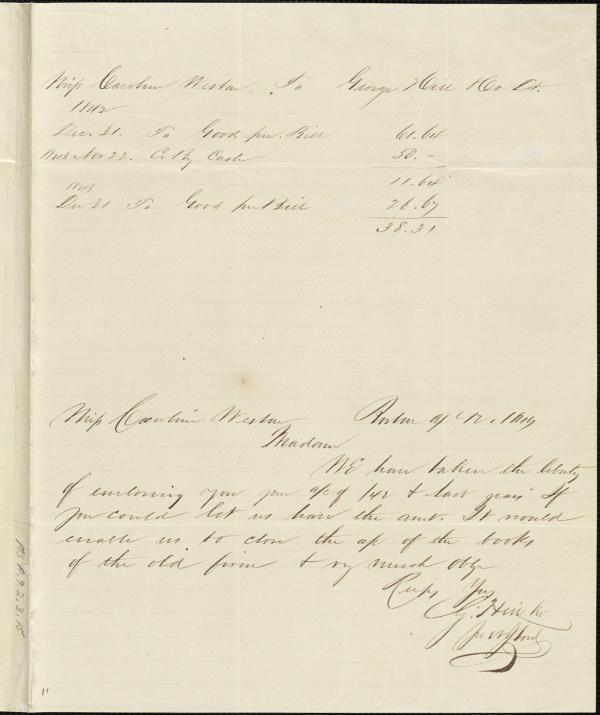 Miss Caroline Weston, To George Hill & Co Dr.
1842
Dec. 31. To Goods per. Bill 61.64
1843 Nov 22. C. By Cash 50.-
11.64
1843
Dec 31 To Goods per Bill 26.67
38.31
Miss Caroline Weston Boston
Madam
We have taken the liberty
of enclosing you your a/c of /42 & last years If
you could let us have the amt. It would
enable us to close the a/c of the books
of the old firm & very much oblige
Resps Yrs
G. Hill & Co
MS A.9.2.3.15
11